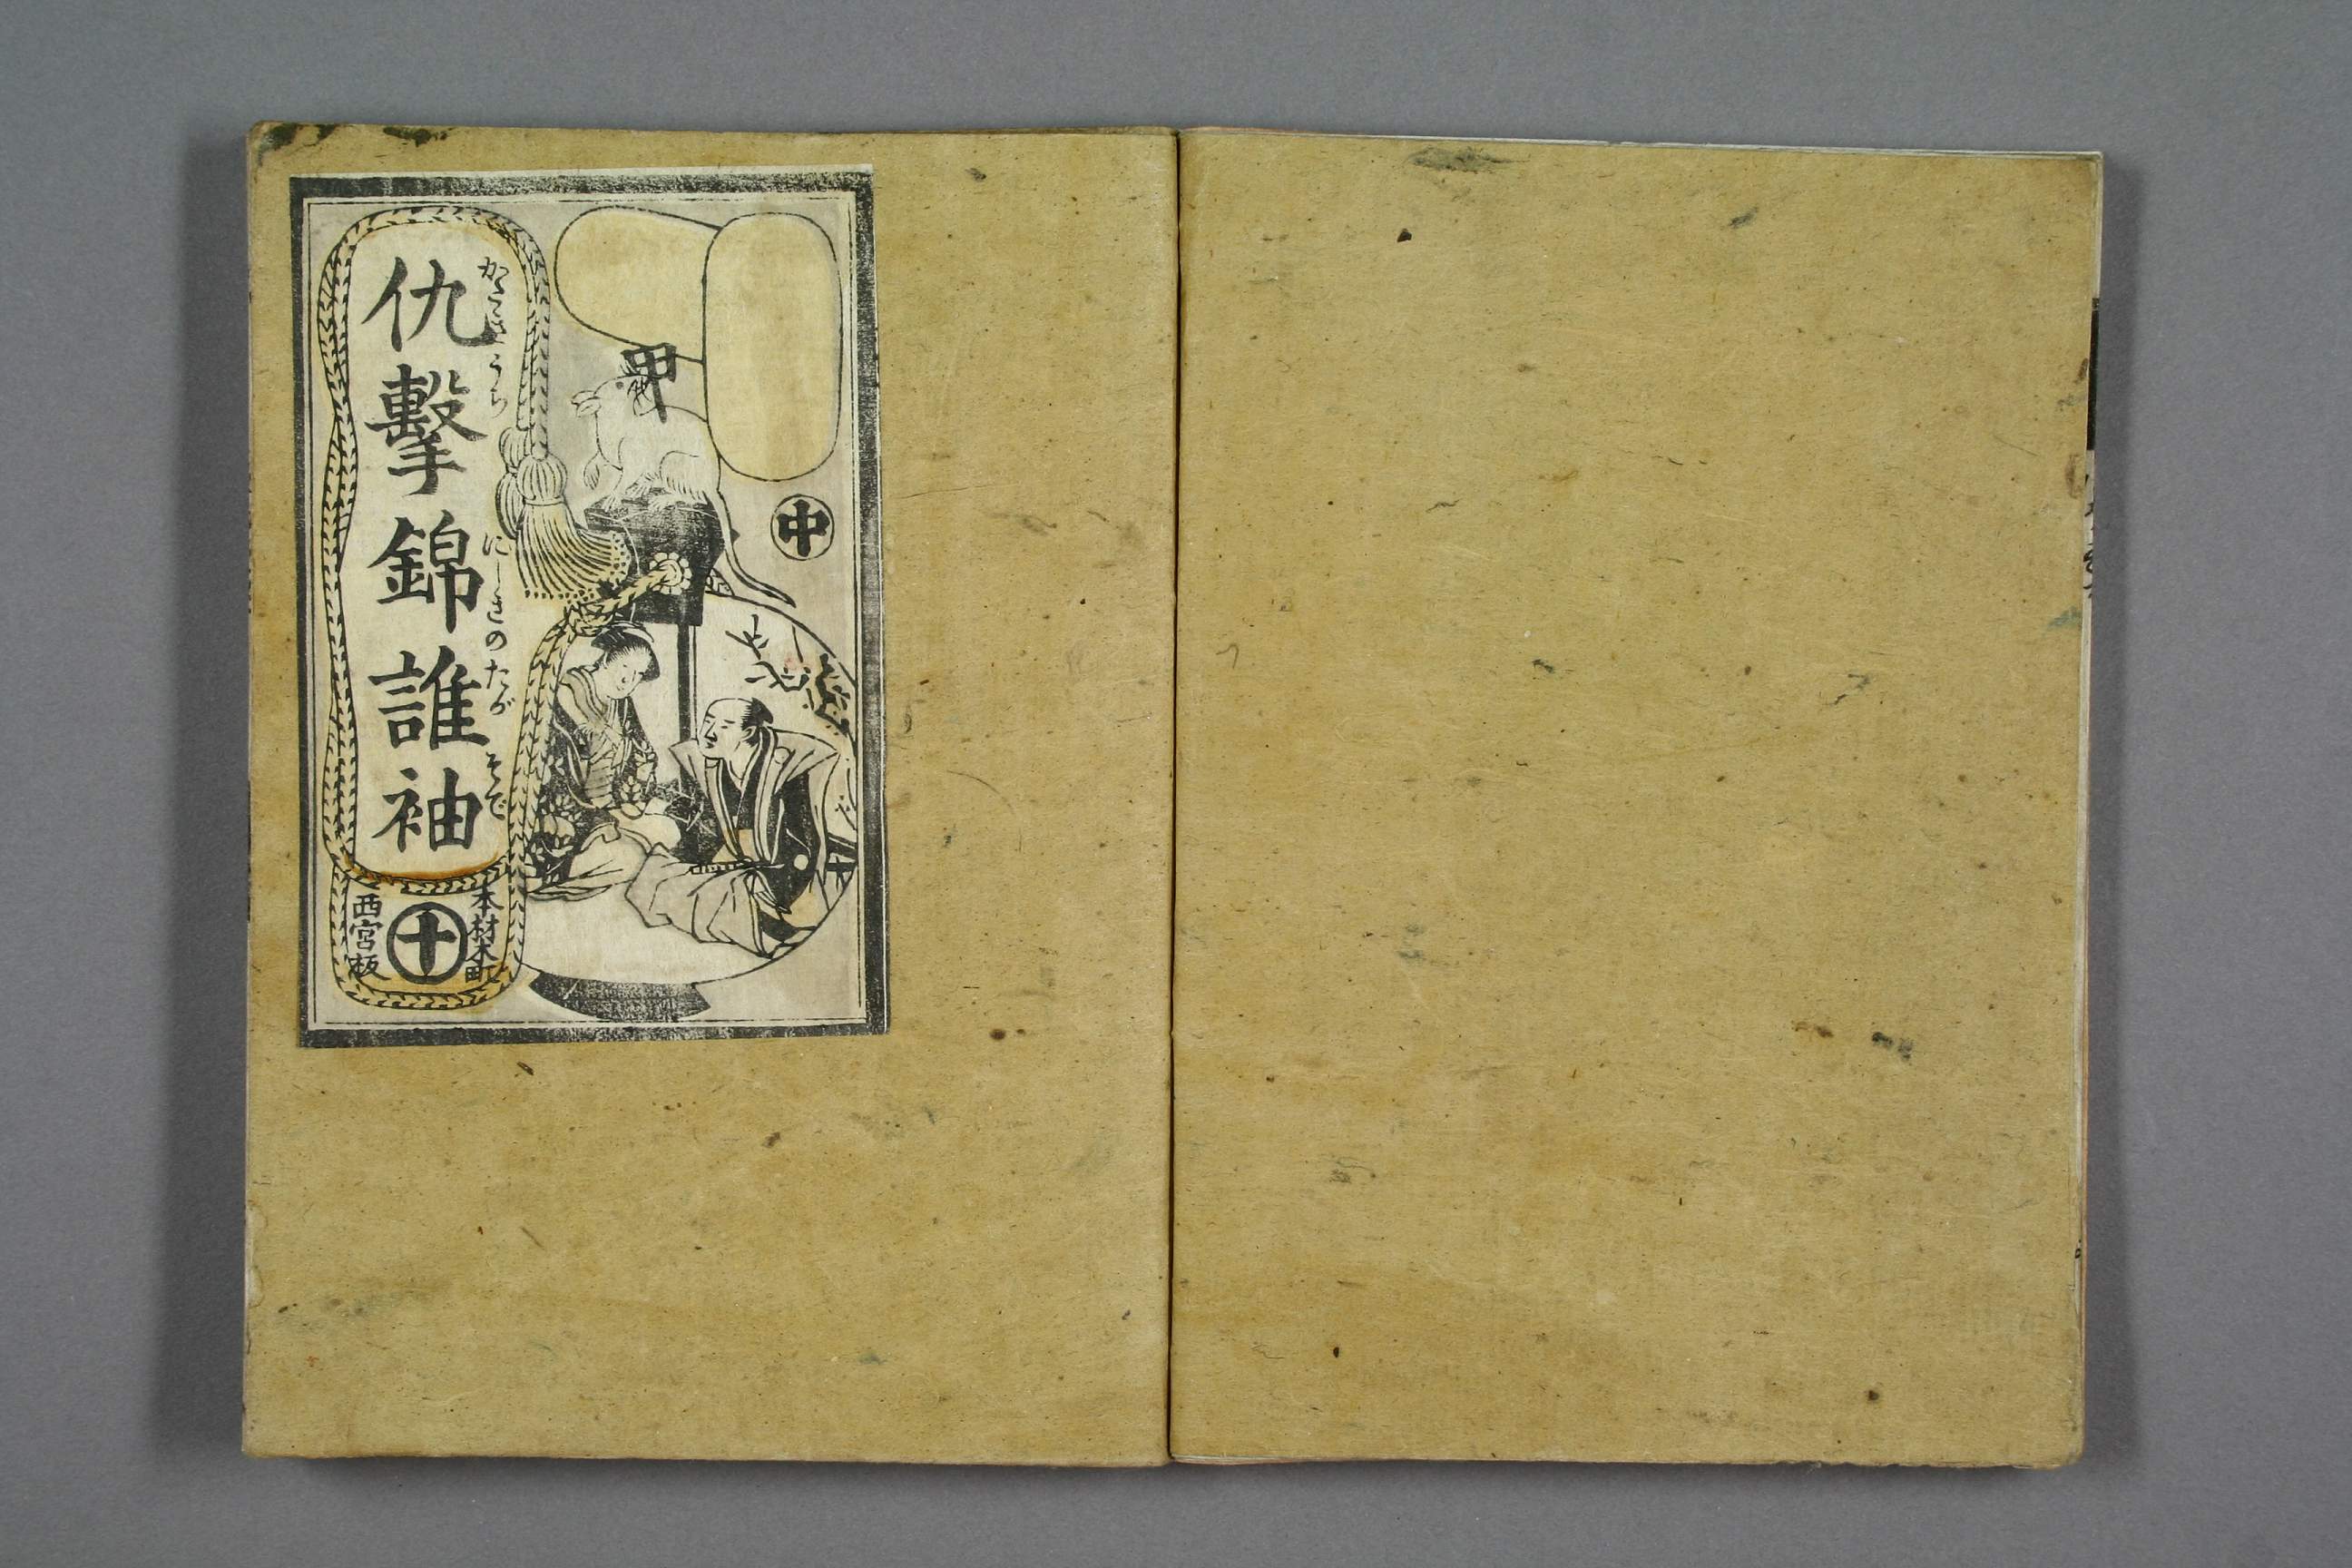 甲
中
仇擊錦誰袖
かたきうち
にしきのたが
そで
本材木町
十
西宮板